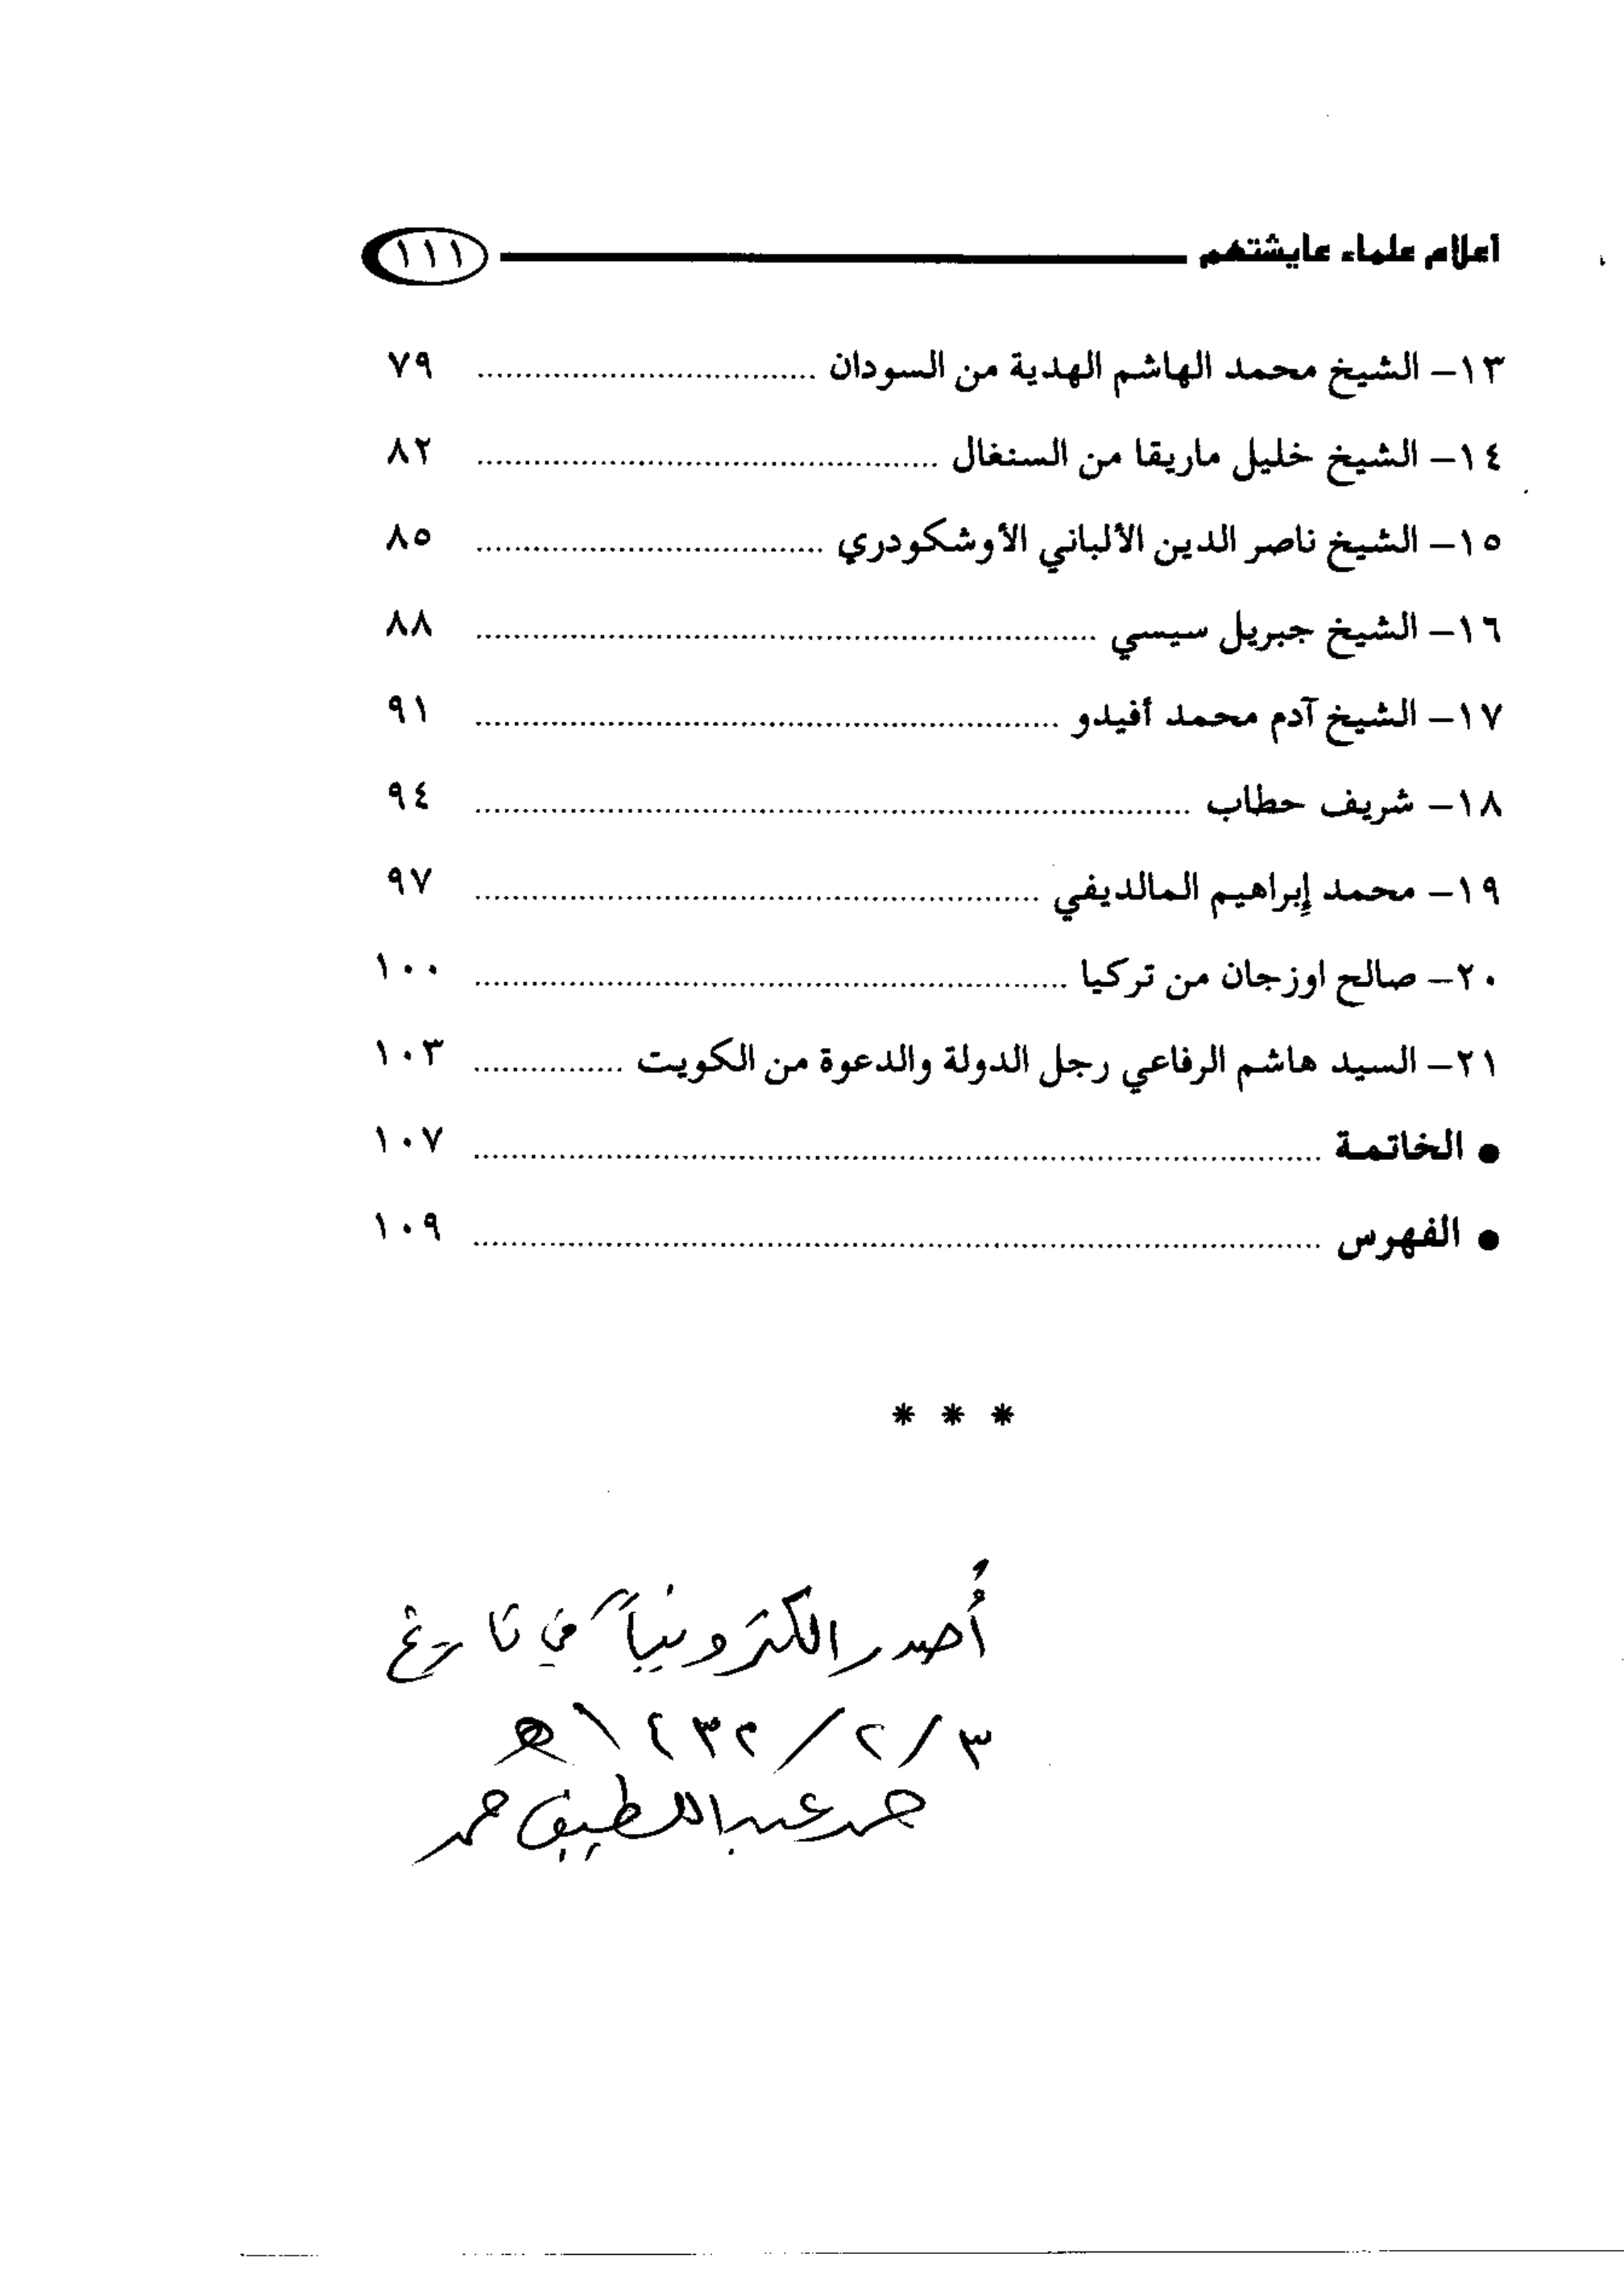 أعلام علماء عايشتهم ١١١
١٣- الشيخ محمد الهاشم الهدية من السودان ................................ ٧٩
١٤- الشيخ خليل ماريقا من السنغال ................................ ٨٢
١٥- الشيخ ناصر الدين الألباني الأوشكودري ................................ ٨٥
١٦- الشيخ جبريل سيسي ................................ ٨٨
١٧- الشيخ آدم محمد أفيدو ................................ ٩١
١٨- شريف حطاب ................................ ٩٤
١٩- محمد إبراهيم المالديفي ................................ ٩٧
٢٠- صالح اوزجان من تركيا ................................ ١٠٠
٢١- السيد هاشم الرفاعي رجل الدولة والدعوة من الكويت ................ ١٠٣
● الخاتمة ................................ ١٠٧
● الفهرس ................................ ١٠٩
* * *
أُصدر الكترونياً في تاريخ
٣/٢/١٤٣٢ هـ
حمد عبداللطيف حمد